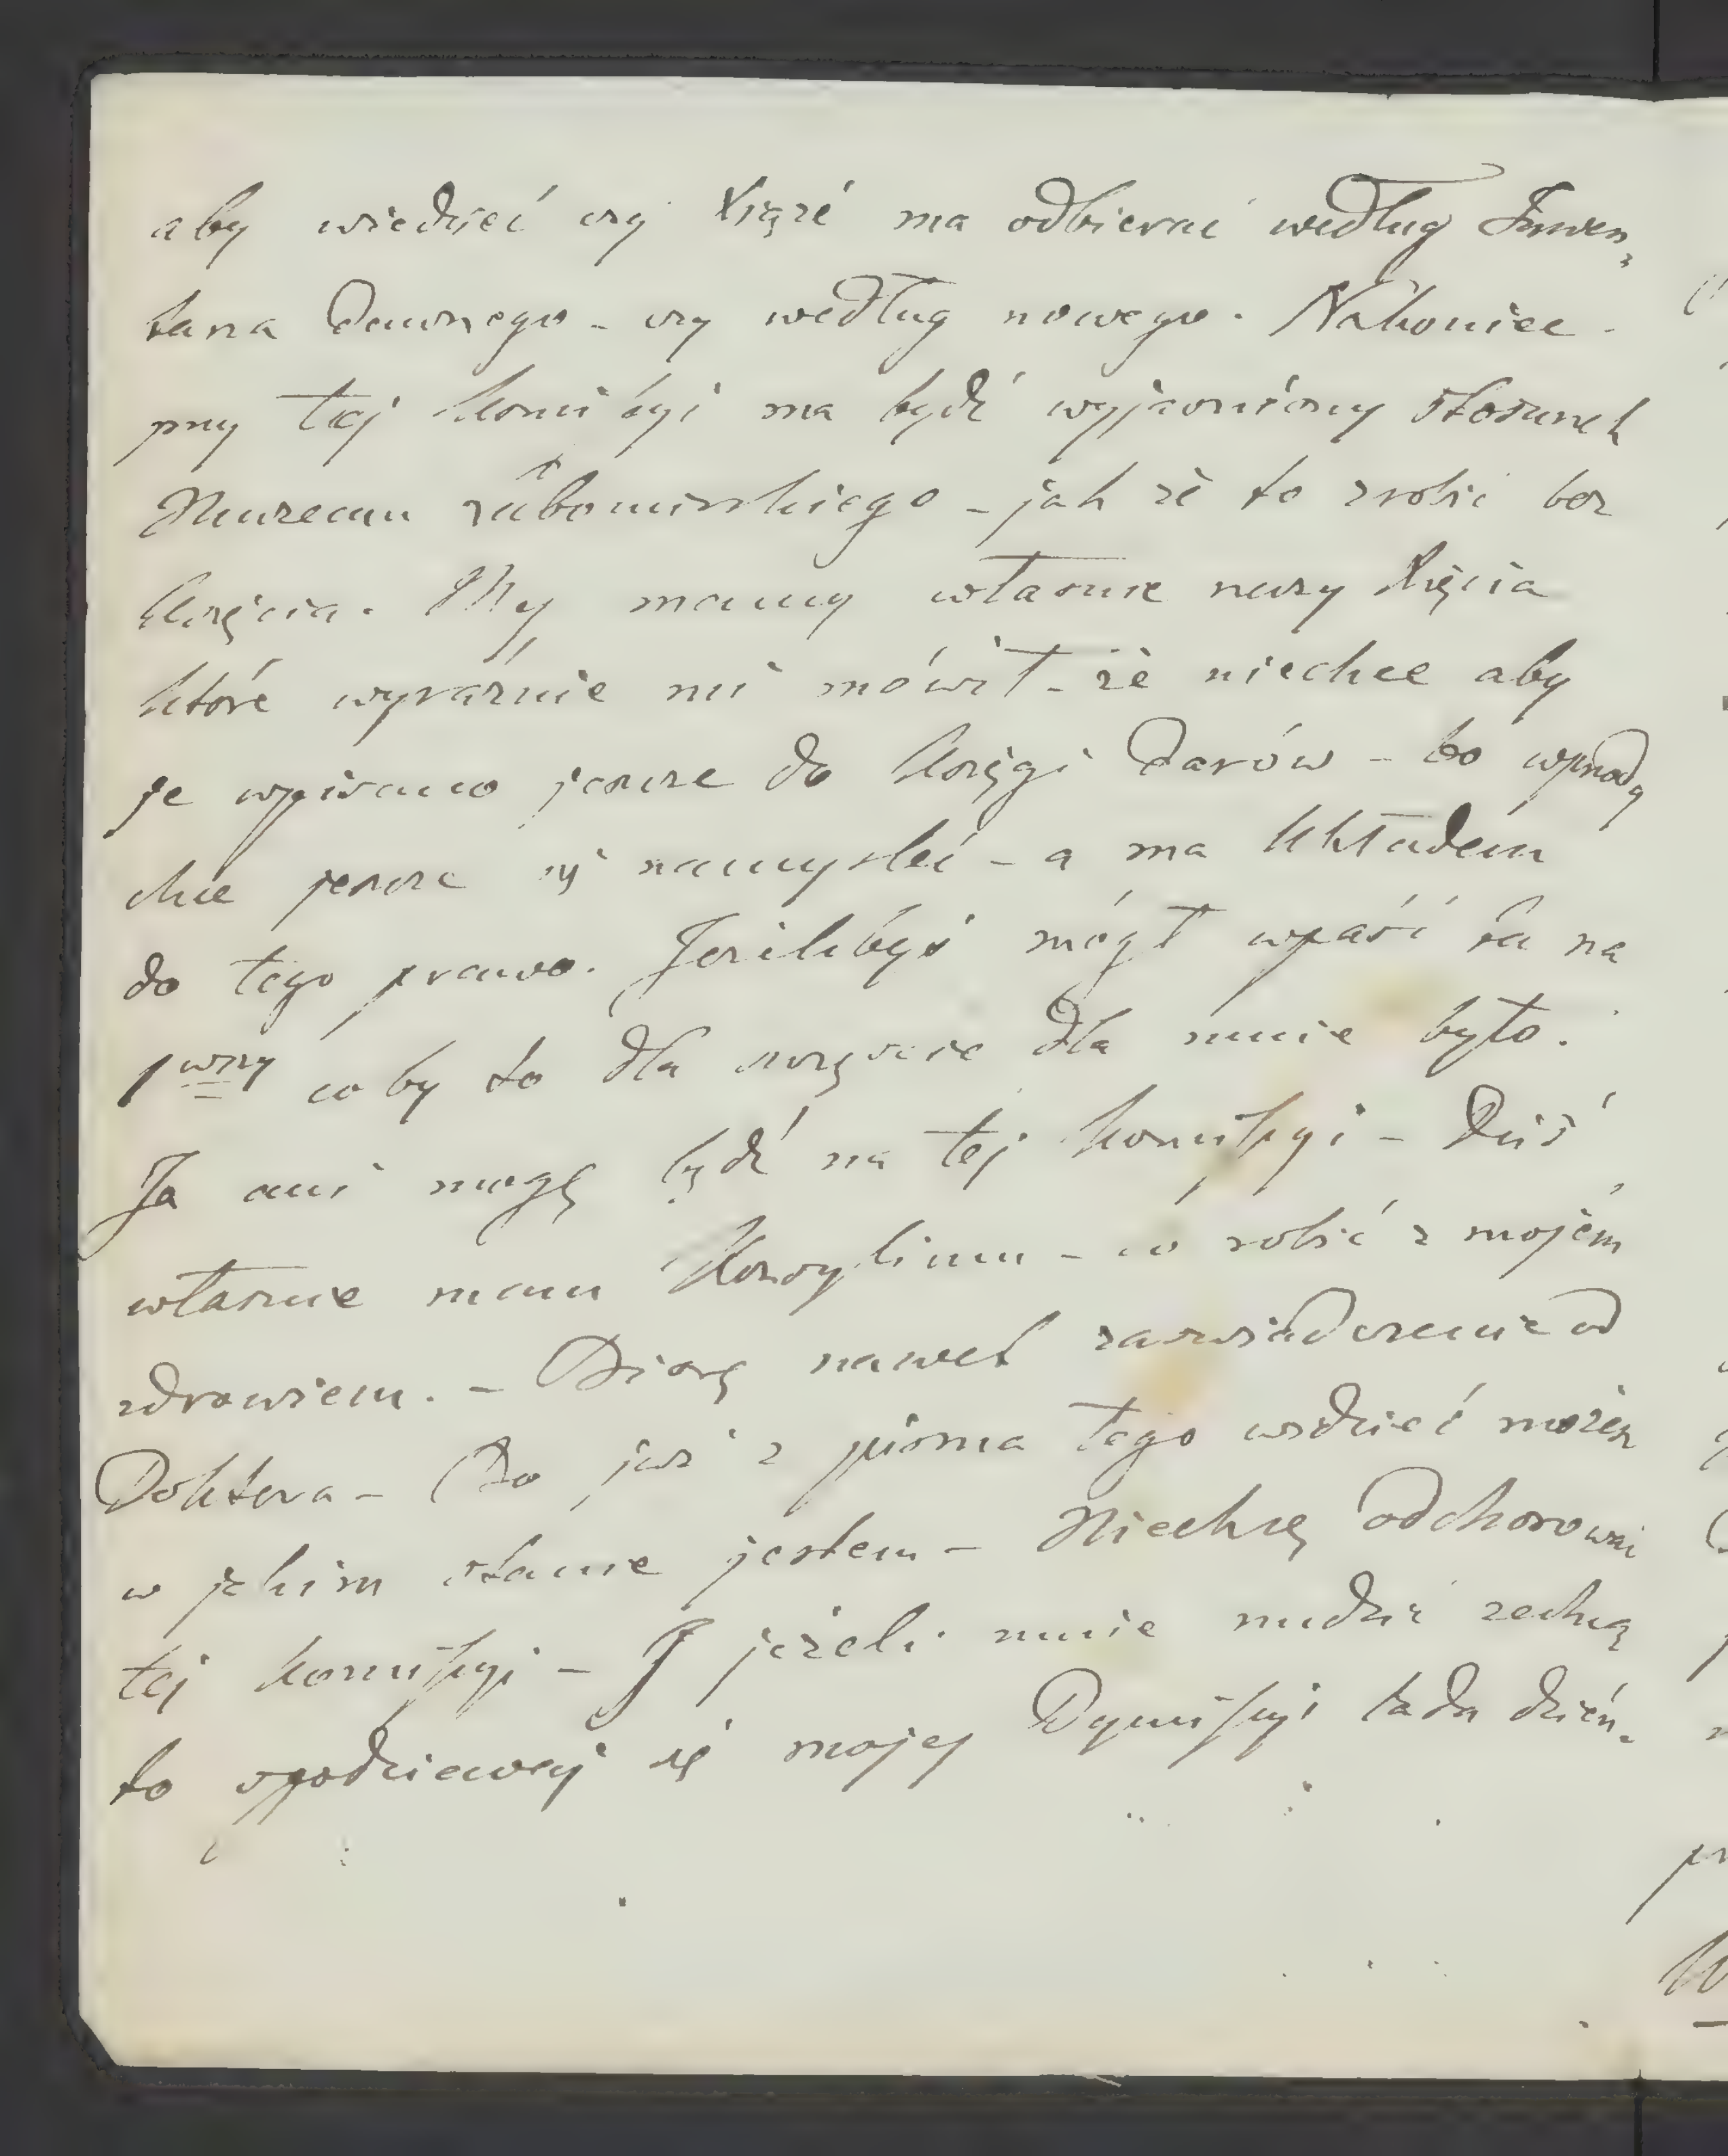 aby wiedzieć czy Xiąże ma odbierać według Inwen,
tarza dawnego – czy według nowego. Nakoniec
przy tej Komissyi ma bydź wyjaśniony stosunek
Muzeum Lubomirskiego – jak że to zrobić bez
Księcia. My mamy własnie rzeczy Xięcia
które wyraźnie mi mówił – że niechce aby
je wpisano jeszcze do Księgi Darów – bo wprzódy
chce jeszcze się namysleć – a ma Układem
do tego prawo. Jeżelibyś mógł wpaść tu na
1wszy co by to dla szczęście dla mnie było.
Ja ani mogę bydź na tej Komissyi – Dziś
własnie mam Konsylium – co robić z mojém
zdrowiem. – Biorę nawet zaswiadczenie od
Doktora – Bo już z pisma tego widzieć możesz
w jakim stanie jestem – Niechcę odchorować
tej Komissyi – I jeżeli mnie nudzić zechcą
to spodziewaj się mojej Dymissyi lada dzień.